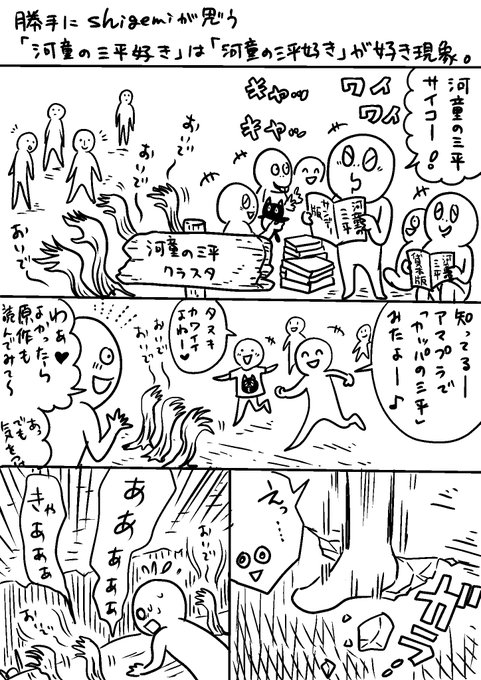 勝手にshigemiが思う
「河童の三平好き」は「河童の三平好き」が好き現象。
河童の三平
サイコー!!
ワイ
ワイ
キャッ
キャッ
河童の
三平
サンデー
版
河童の
三平
貸本版
おいで
おいで
おいで
おいで
河童の三平
クラスタ
知ってるー
アマプラで
「カッパの三平」
みたよー♪
タヌキ
カワイイ
よねー
おいで
おいで
わぁ♥
よかったら
原作も
読んでみて〜
あっ
でも
気をつ
えっ…
ああああああ
きゃあああ
おいで
おいで